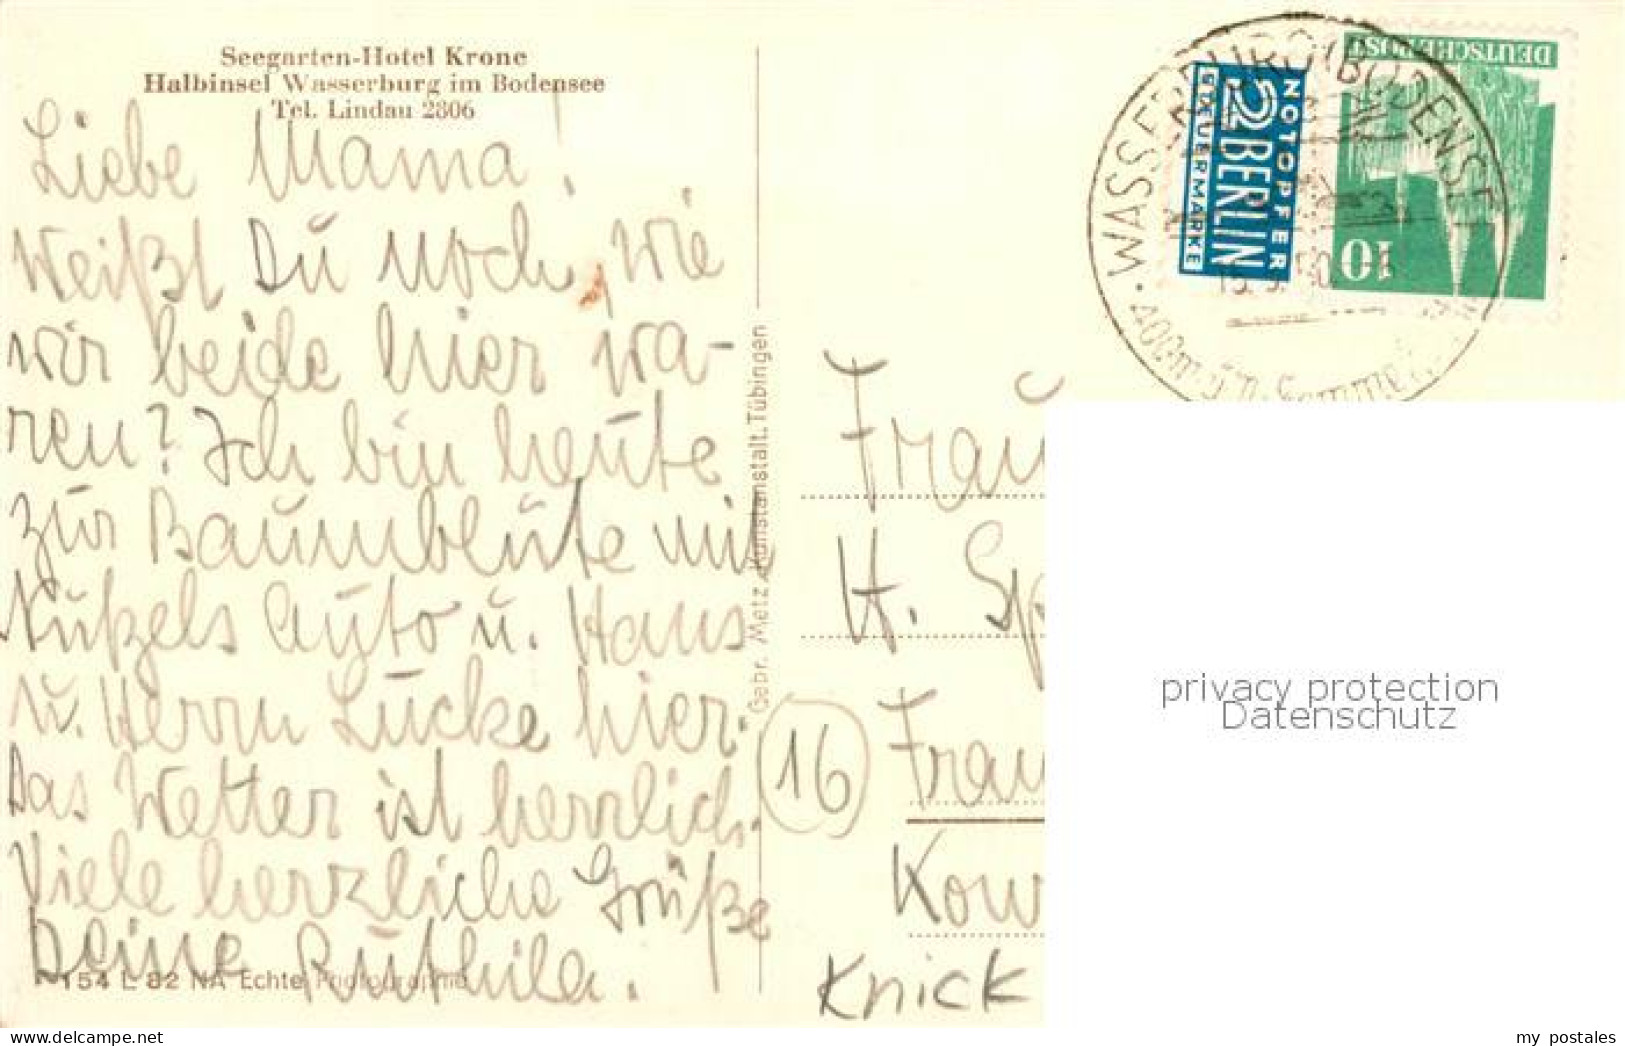 Seegarten-Hotel Krone
Halbinsel Wasserburg im Bodensee
Tel. Lindau 2806
Liebe Mama!
Weißt Du noch, wie
wir beide hier wa-
ren? Ich bin heute
zur Baumblüte mit
Nußzels Auto u. Haus
u. Herrn Lücke hier.
Das Wetter ist herrlich.
Viele herzliche Grüße
Deine Ruthila.
154 L 82 NA Echte Photographie
Gebr. Metz, Kunstanstalt, Tübingen
NOTOPFER
2 BERLIN
STEUERMARKE
DEUTSCHE POST
10
WASSERBURG (BODENSEE)
400m ü.
Frau
H. Sp
(16)
Frau
Kow
Knick
privacy protection
Datenschutz
www.delcampe.net
my_postales